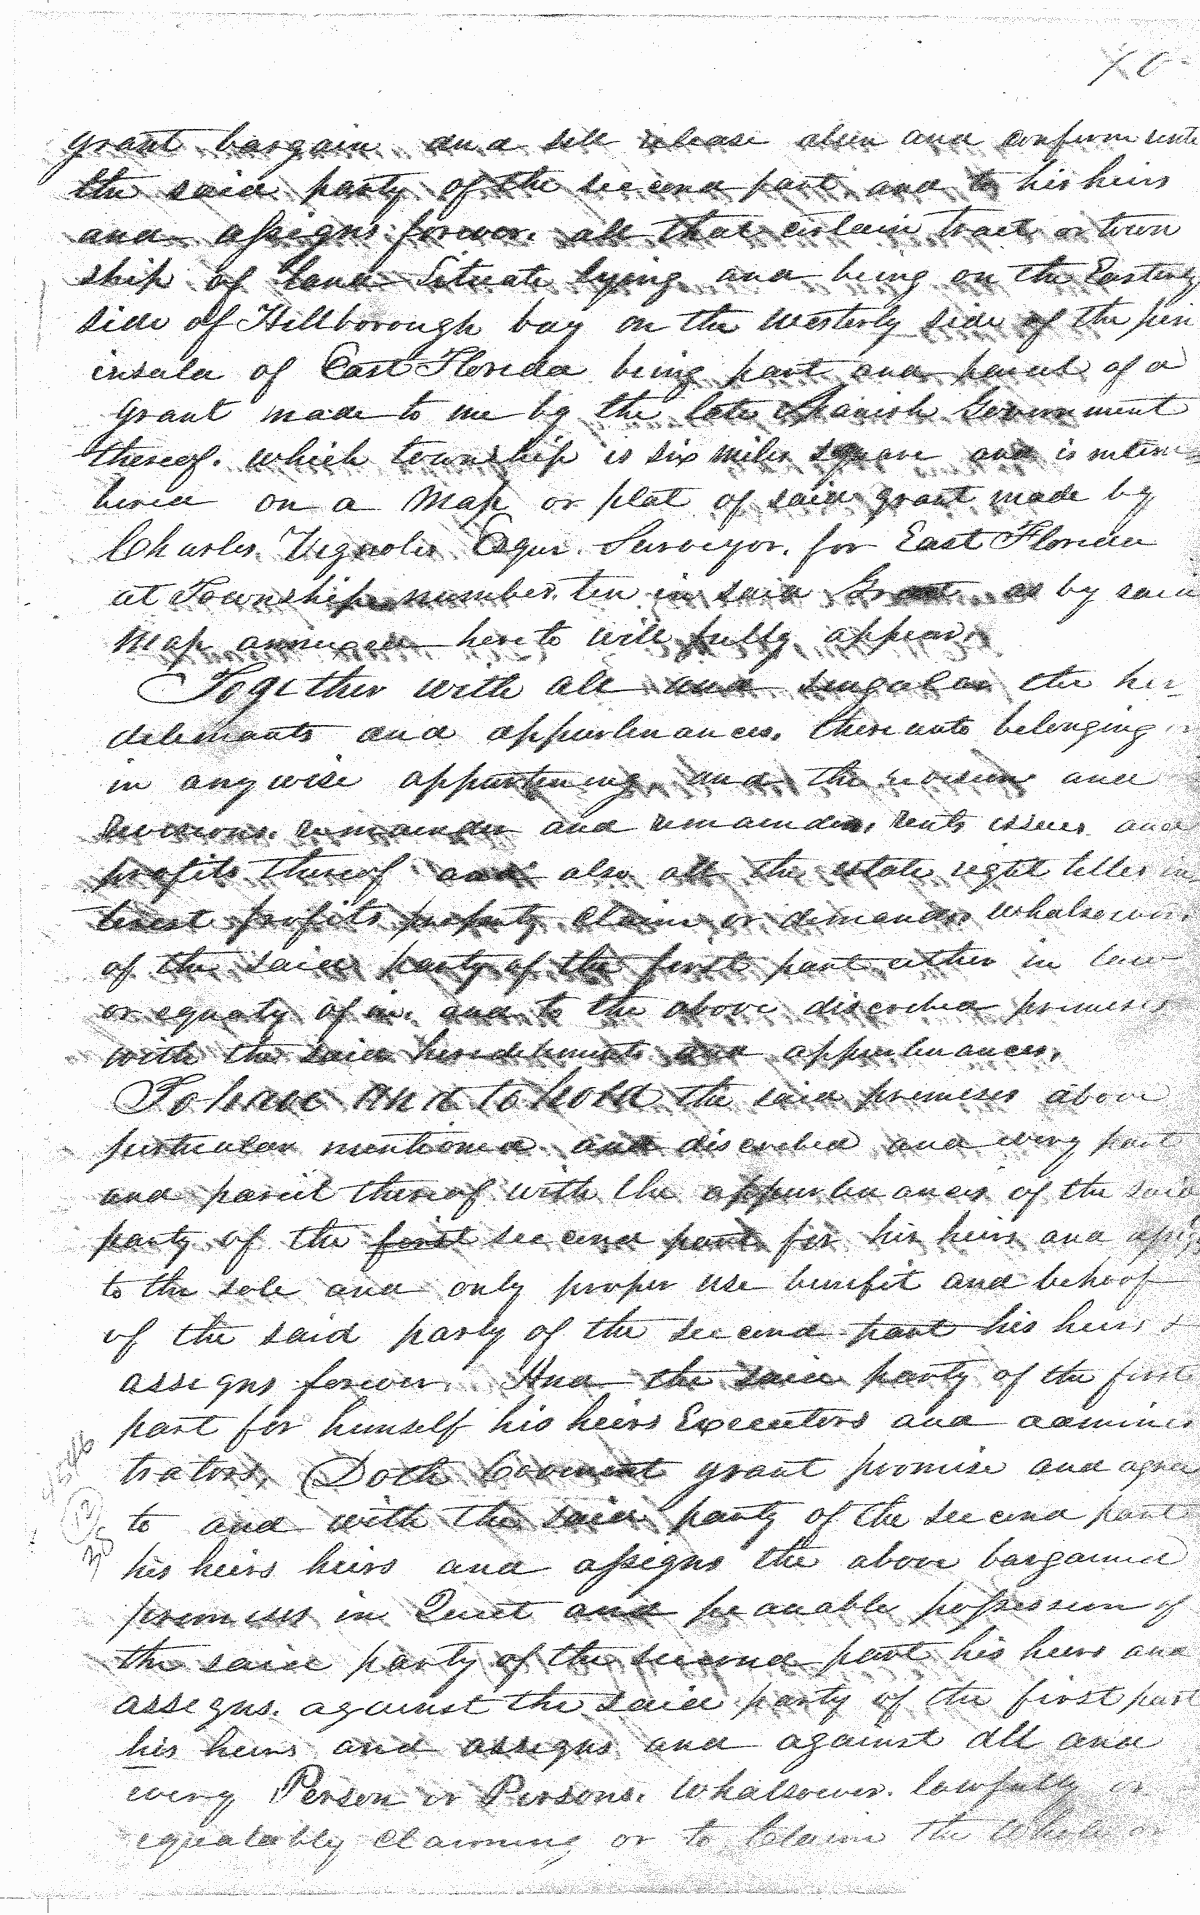 70
grant bargain and sell release alien and confirm unto
the said party of the second part. and to his heirs
and assigns forever. all that certain tract or town
ship of land Situate lying and being on the Easterly
side of Hillborough bay on the westerly side of the pen
insula of East Florida being part and parcel of a
Grant made to me by the late Spanish Government
thereof. which township is six miles square and is num
bered on a Map or plat of said grant made by
Charles Vignoles Esqur. Surveyor. for East Florida
at Township number ten in said Grant as by said
Map annexed hereto will fully appear.
Together with all and singular the her-
detements and appurtenances. thereunto belonging or
in anywise appurtening and the revision and
revisions. remainder and remainders, rents issues and
profits thereof and also all the estate right titles in
terest profits property claim or demands whatsoever.
of the said party of the first part either in law
or equaty of in. and to the above discrebed premises
with the said heredetements and appurtenances.
To have And to hold the said premises above
perticular mentioned and discrebed and every part
and parcel thereof with the appurtenances of the said
party of the first second part for his heirs and assigs
to the sole and only proper use benifit and behoof
of the said party of the second part his heirs &
assegns forever. And the said party of the first
part for himself his heirs Executors and adminis
trators. Doth Covenent grant promise and agree
to and with the said party of the second part
his heirs heirs and assigns the above bargained
premises in Quiet and peacable possession of
the said party of the second part his heirs and
assegns. against the said party of the first part
his heirs and assegns and against all and
every Person or Persons. whatsoever. lawfully or
equatably claiming or to Claim the whole or
12